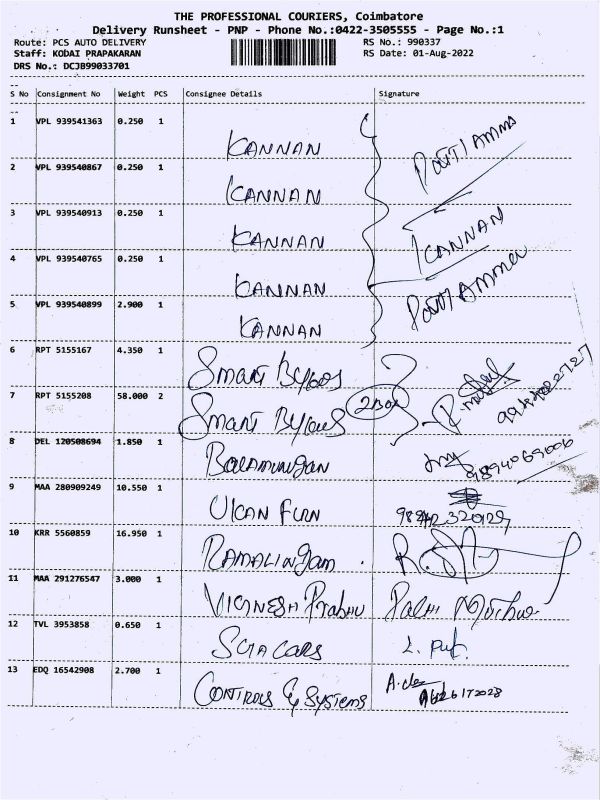 THE PROFESSIONAL COURIERS, Coimbatore
Delivery Runsheet - PNP - Phone No.:0422-3505555 - Page No.:1
Route: PCS AUTO DELIVERY RS No.: 990337
Staff: KODAI PRAPAKARAN RS Date: 01-Aug-2022
DRS No.: DCJB99033701
S No Consignment No Weight PCS Consignee Details Signature
1 VPL 939541363 0.250 1
KANNAN
2 VPL 939540867 0.250 1
KANNAN
3 VPL 939540913 0.250 1
KANNAN KANNAN
4 VPL 939540765 0.250 1
KANNAN
5 VPL 939540899 2.900 1
KANNAN
6 RPT 5155167 4.350 1
Smart
7 RPT 5155208 58.000 2
Smart 2Box
8 DEL 120508694 1.850 1
Balamurugan
9 MAA 280909249 10.550 1
FURN
10 KRR 5560859 16.950 1
RAMALINGam
11 MAA 291276547 3.000 1
VIGNESH Prabhu
12 TVL 3953858 0.650 1
CARS
13 EDQ 16542908 2.700 1
CONTROLS & SYSTEMS